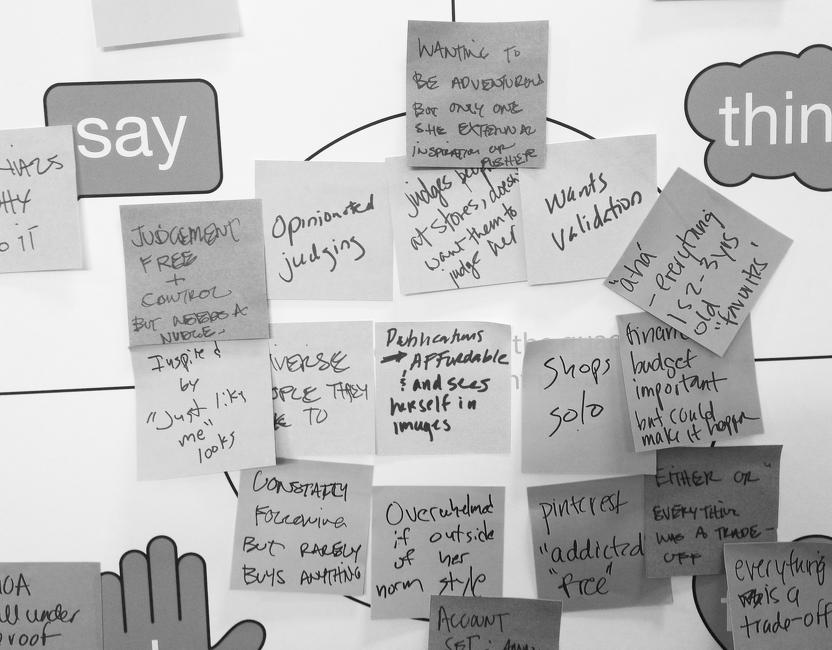 say
thin
WANTING TO
BE ADVENTUROUS
BUT ONLY ONE
SHE EXTERNAL
INSPIRATION OR
PUSHER
HATS
O IT
JUDGEMENT
FREE
+
CONTROL
BUT NEEDS A
NUDGE.
Opinionated
judging
judges peop
at stores, doesn't
want them to
judge her
wants
validation
"aha"
- everything
1s 2-3 yrs
old
"favorites"
Inspired
by
"Just like
me"
looks
VERSE
PLE THEY
E TO
Publications
→ AFFORDABLE
& and sees
herself in
images
the gues
shops
solo
financ
budget
important
but could
make it happen
CONSTANTLY
Following
BUT RARELY
BUYS ANYTHING
Overwhelmed
if outside
of her
norm style
pinterest
"addicted
"free"
EITHER OR"
EVERYTHING
WAS A TRADE-
OFF
everything
is a
trade-off
OA
ll under
roof
ACCOUNT
SET: